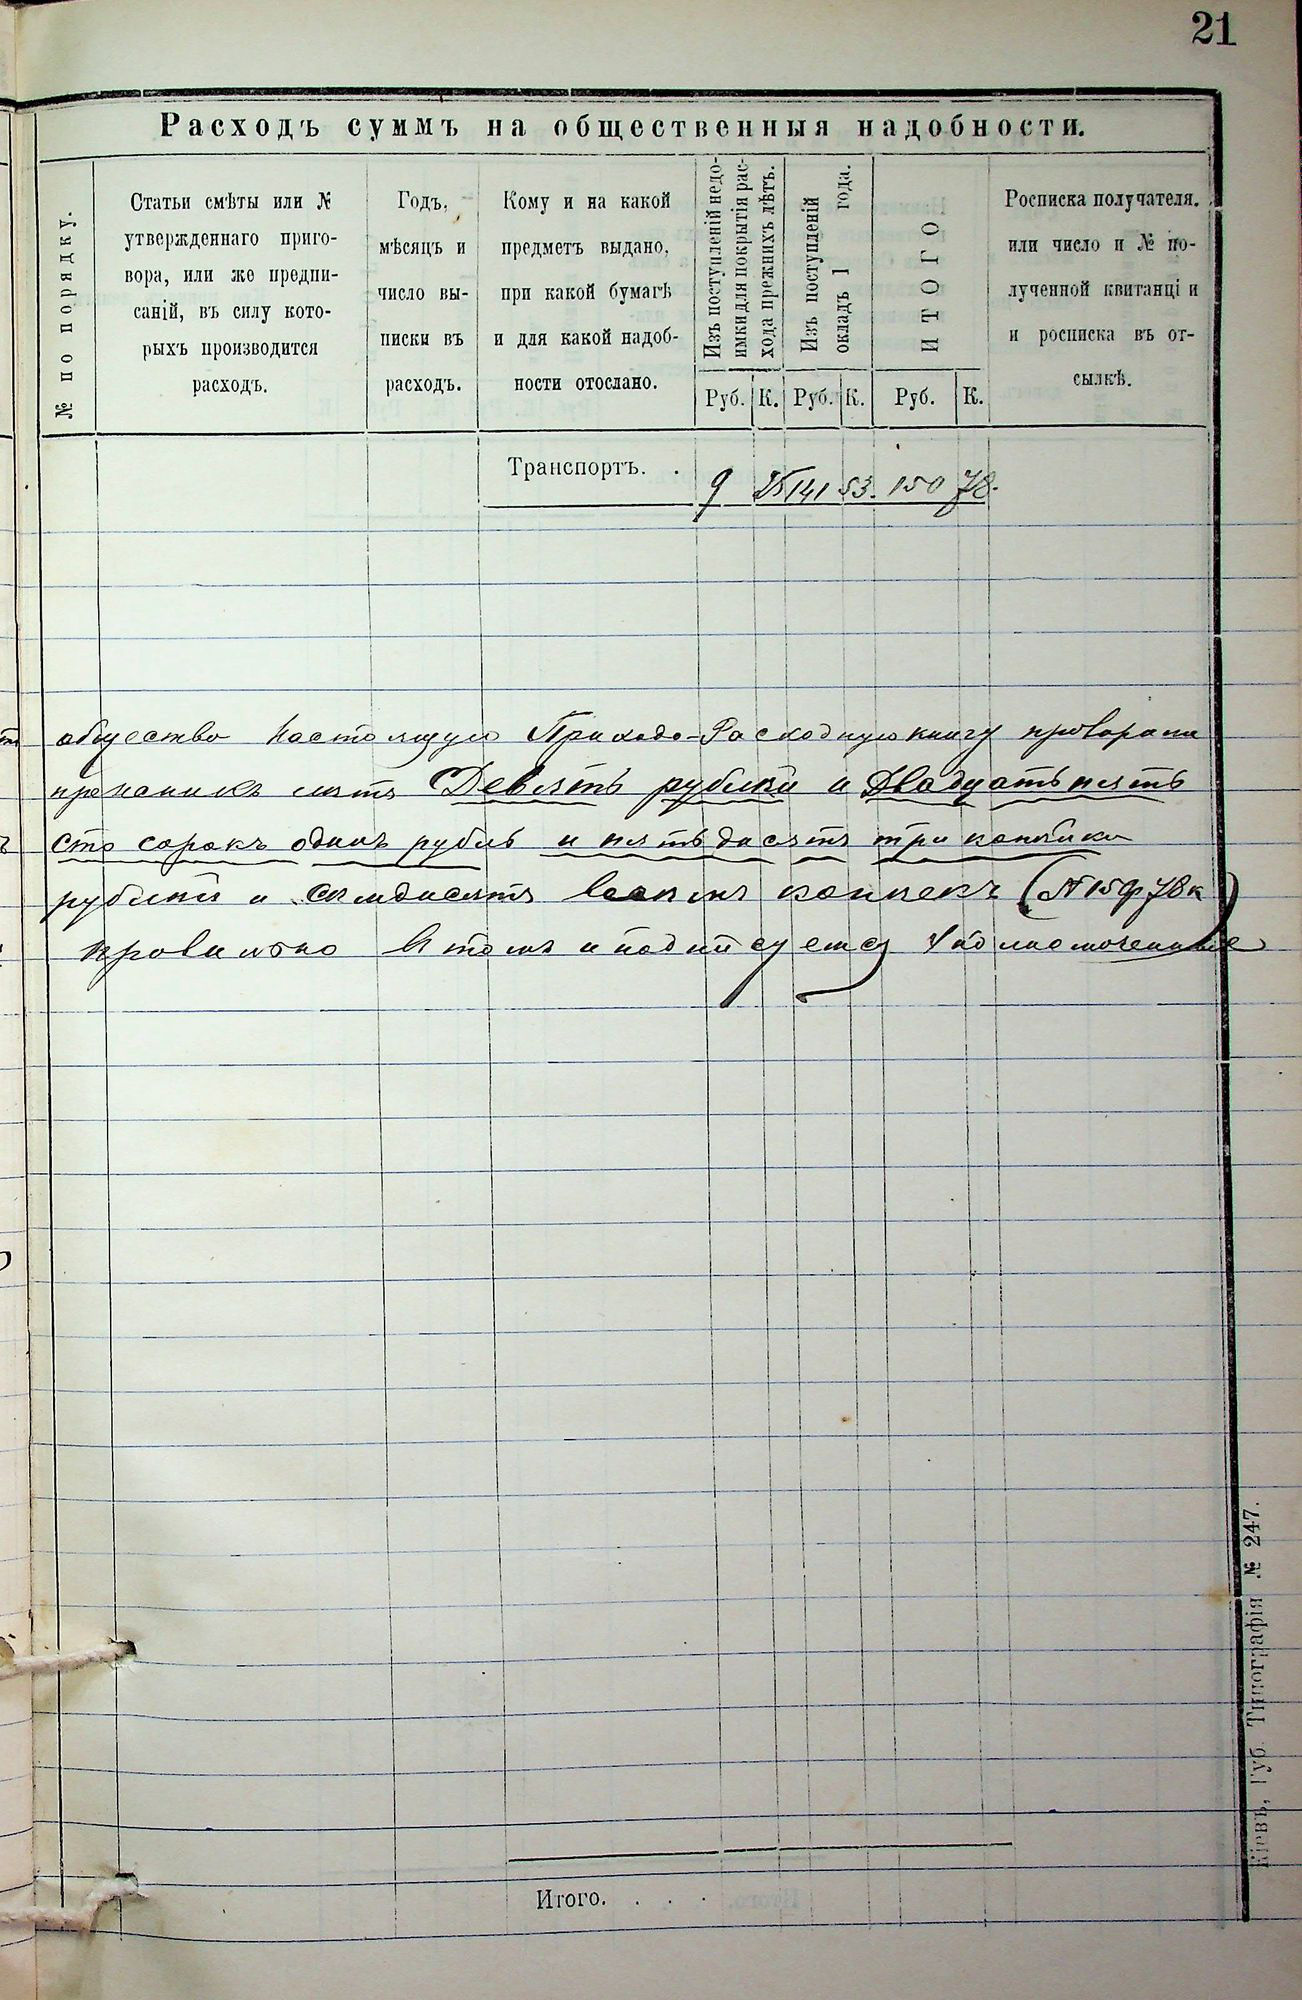 21
Расходъ суммъ на общественныя надобности.
№ по порядку.
Статьи смѣты или №
утвержденнаго приго-
вора, или же предпи-
саній, въ силу кото-
рыхъ производится
расходъ.
Годъ,
мѣсяцъ и
число вы-
писки въ
расходъ.
Кому и на какой
предметъ выдано,
при какой бумагѣ
и для какой надоб-
ности отослано.
Изъ поступленій недо-
имки для покрытія рас-
хода прежнихъ лѣтъ.
Руб. К.
Изъ поступленій
окладъ 1 года.
Руб. К.
ИТОГО
Руб. К.
Росписка получателя.
или число и № по-
лученной квитанці и
и росписка въ от-
сылкѣ.
Транспортъ. . 9 25 141 53. 150 78.
общество настоящую Приходо-Расходную книгу
Девять рублей и Двадцать пять
сто сорокъ одинъ рубль и пятьдесятъ три копѣйки
рублей и семдисятъ восемь копѣекъ
правильно в томъ и подписуемся Уполномоченные
Итого. . . .
Кіевъ, Губ. Типографія № 247.